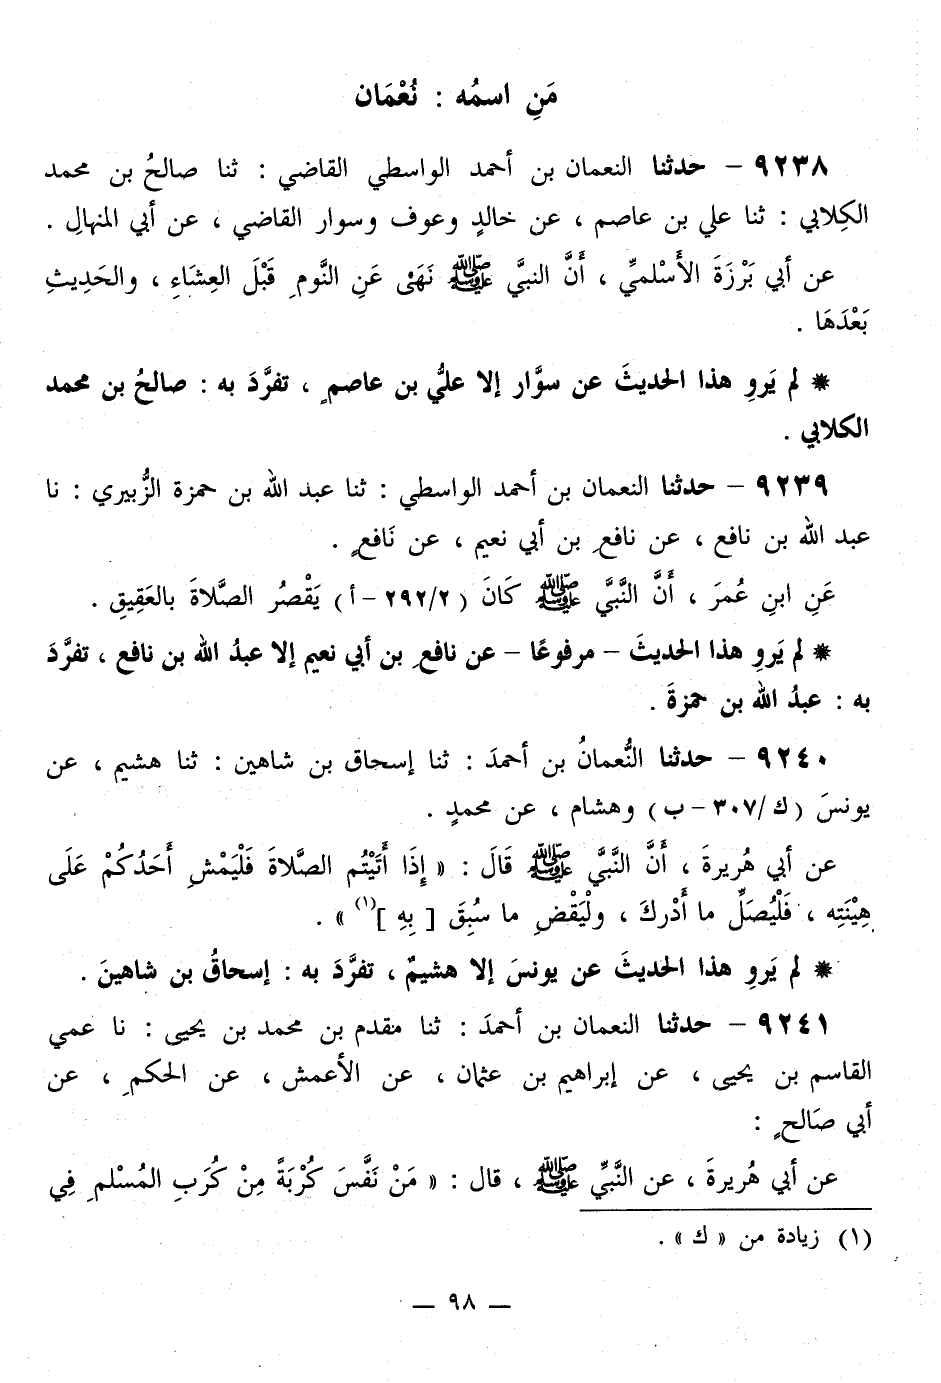 مَنِ اسمُه : نُعْمَان
٩٢٣٨ – حدثنا النعمان بن أحمد الواسطي القاضي : ثنا صالحُ بن محمد
الكِلابي : ثنا علي بن عاصم ، عن خالدٍ وعوف وسوار القاضي ، عن أبي المنهالِ .
عن أبي بَرْزَةَ الأَسْلميِّ ، أَنَّ النبيَّ ﷺ نَهَىٰ عَنِ النَّومِ قَبْلَ العِشَاءِ ، والحَدِيثِ
بَعْدَهَا .
* لم يَروِ هذا الحديثَ عن سوَّار إلا عليُّ بن عاصمٍ ، تفرَّدَ به : صالحُ بن محمد
الكلابي .
٩٢٣٩ – حدثنا النعمان بن أحمد الواسطي : ثنا عبد الله بن حمزة الزُّبيري : نا
عبد الله بن نافع ، عن نافعِ بن أبي نعيم ، عن نَافعٍ .
عَنِ ابنِ عُمرَ ، أَنَّ النَّبيَّ ﷺ كَانَ (٢/٢٩٢ – أ) يَقْصُرُ الصَّلاةَ بالعَقِيقِ .
* لم يَروِ هذا الحديثَ – مرفوعًا – عن نافعِ بن أبي نعيم إلا عبدُ الله بن نافع ، تفرَّدَ
به : عبدُ الله بن حمزةَ .
٩٢٤٠ – حدثنا النُّعمانُ بن أحمدَ : ثنا إسحاق بن شاهين : ثنا هشيم ، عن
يونسَ (ك/٣٠٧ – ب) وهشام ، عن محمدٍ .
عن أبي هُريرةَ ، أَنَّ النَّبيَّ ﷺ قَالَ : « إِذَا أَتَيْتُم الصَّلاةَ فَلْيَمْشِ أَحَدُكُمْ عَلَى
هِيْنَتِه ، فَلْيُصَلِّ ما أَدْركَ ، ولْيَقْضِ ما سُبِقَ [ بِهِ ](١) » .
* لم يَروِ هذا الحديثَ عن يونسَ إلا هشيمٌ ، تفرَّدَ به : إسحاقُ بن شاهينَ .
٩٢٤١ – حدثنا النعمان بن أحمدَ : ثنا مقدم بن محمد بن يحيى : نا عمي
القاسم بن يحيى ، عن إبراهيم بن عثمان ، عن الأعمش ، عن الحكمِ ، عن
أبي صَالحٍ :
عن أبي هُريرةَ ، عن النَّبيِّ ﷺ ، قال : « مَنْ نَفَّسَ كُرْبَةً مِنْ كُرَبِ المُسْلمِ فِي
(١) زيادة من « ك » .
— ٩٨ —